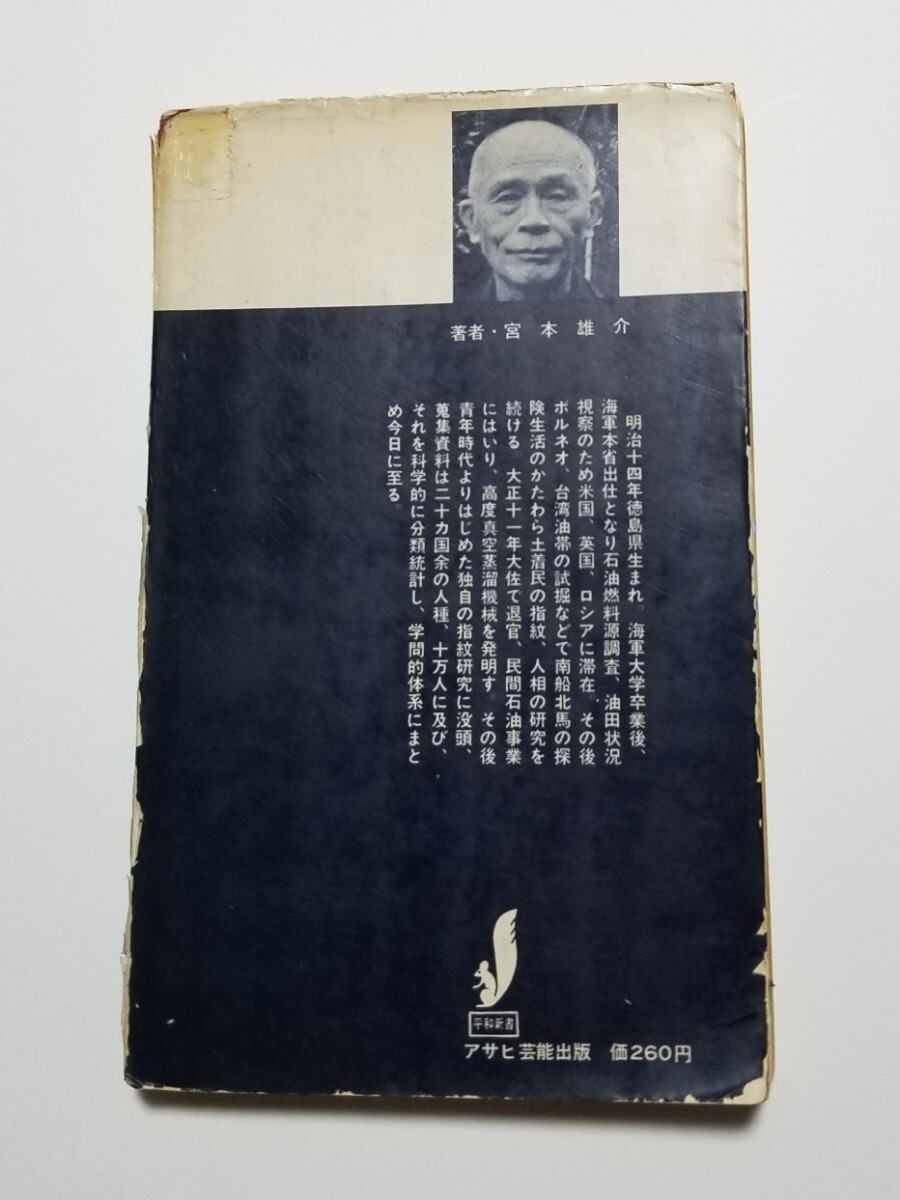 著者・宮本雄介
明治十四年徳島県生まれ。海軍大学卒業後、
海軍本省出仕となり石油燃料源調査、油田状況
視察のため米国、英国、ロシアに滞在。その後
ボルネオ、台湾油帯の試掘などで南船北馬の探
険生活のかたわら土着民の指紋、人相の研究を
続ける。大正十一年大佐で退官、民間石油事業
にはいり、高度真空蒸溜機械を発明す。その後
青年時代よりはじめた独自の指紋研究に没頭、
蒐集資料は二十カ国余の人種、十万人に及び、
それを科学的に分類統計し、学問的体系にまと
め今日に至る。
平和新書
アサヒ芸能出版 価260円